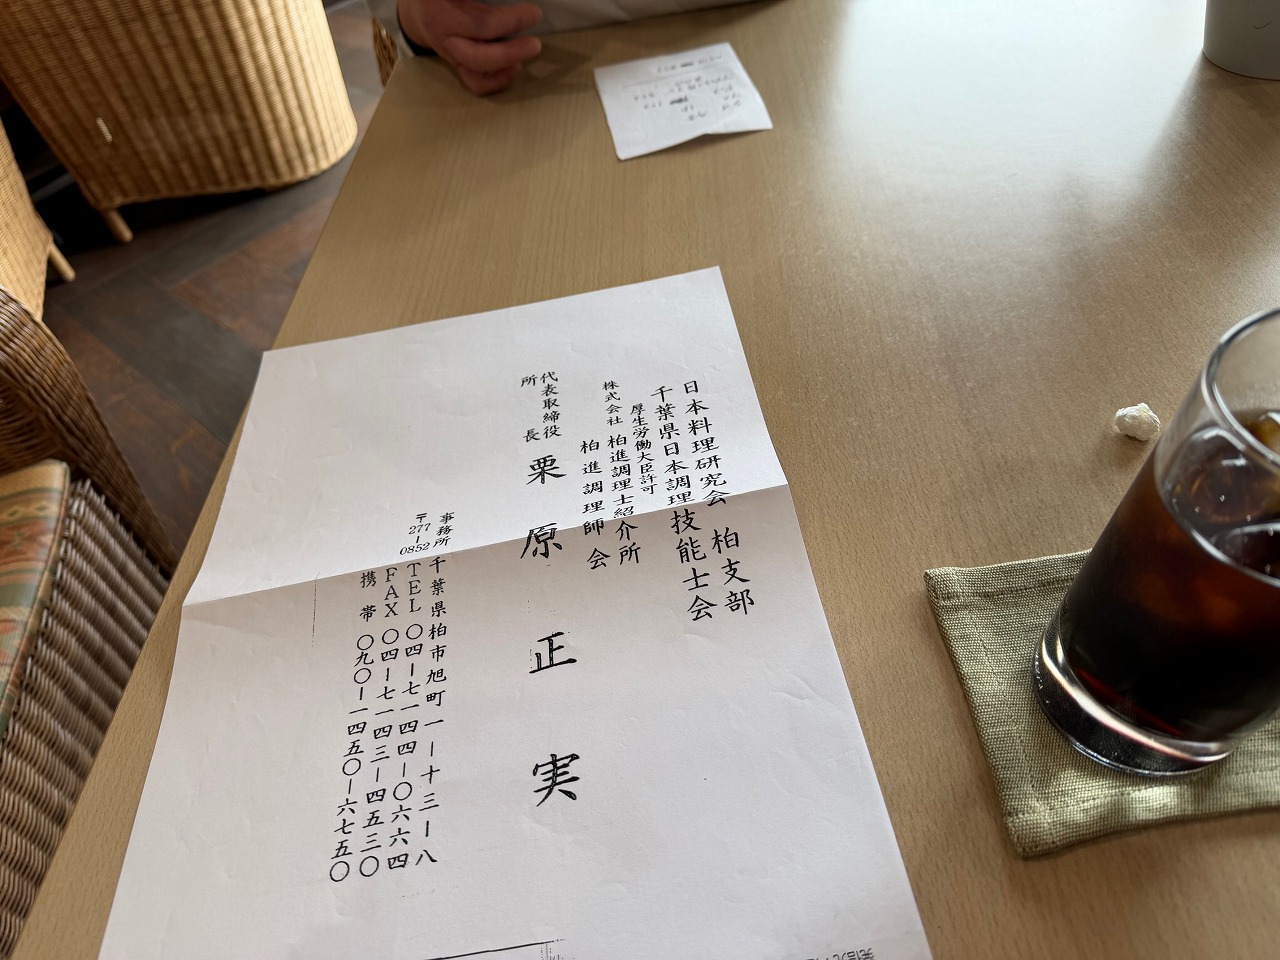 日本料理研究会 柏支部
千葉県日本調理技能士会
厚生労働大臣許可
株式会社 柏進調理士紹介所
柏進調理師会
代表取締役
所長
栗原正実
事務所 千葉県柏市旭町一ー十三ー八
〒277-0852
TEL 〇四ー七一四四ー〇六六四
FAX 〇四ー七一四三ー四五三〇
携帯 〇九〇ー一四五〇ー六七五〇